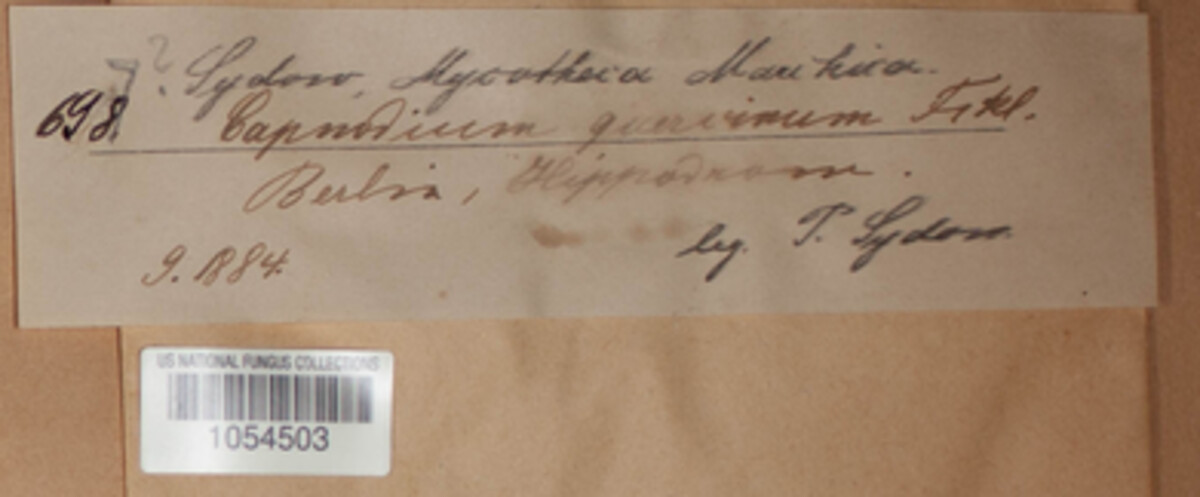 ? Sydow, Mycotheca Marchica.
698. Capnodium quercinum Fckl.
Berlin, Hippodrom.
leg. P. Sydow.
9. 1884.
US NATIONAL FUNGUS COLLECTIONS
1054503